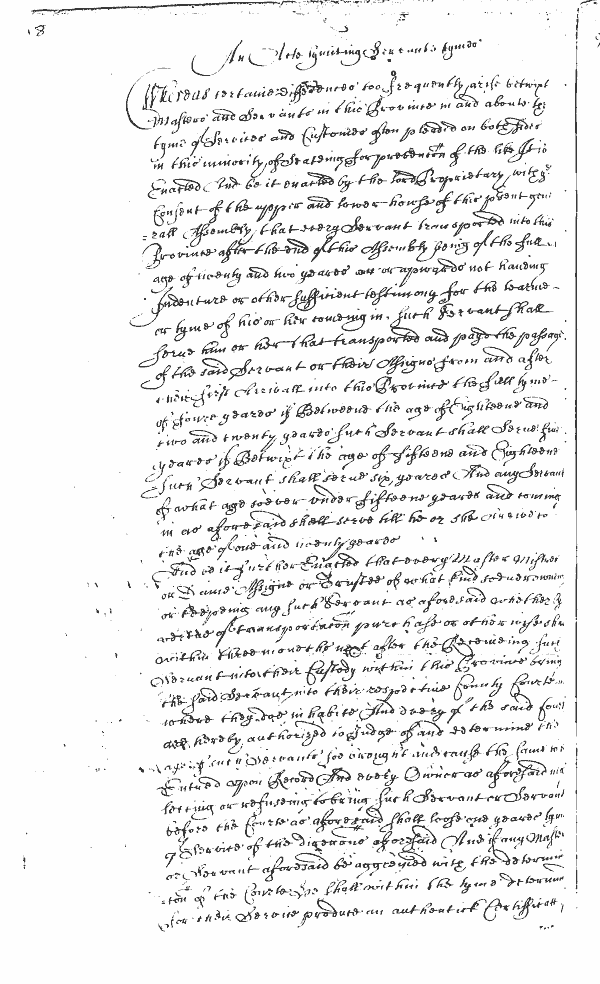 18
An Acte lymiting Servants tymes
Whereas certaine differences too frequently arise betwixt
Masters and Servants in this Province in and aboute the
tyme of Services and Customes often pleaded on both sides
in this minority of Seateing for prevencon of the like It is
Enacted And be it enacted by the lord Proprietary with ye
Consent of the upper and lower howse of this present gen
rall Assembly, that every Servant transported into this
Province after the end of this Assembly being of the full
age of twenty and two yeares or upwards not haveing
Indenture or other sufficient testimony for the
or tyme of his or her comeing in. such Servant shall
serve him or her that transported and payd the passage
of the said Servant or their Assignes from and after
their first Arrivall into this Province the full tyme
of fowre yeares if Betweene the age of Eighteene and
two and twenty yeares such Servant shall serve five
yeares if Betwixt the age of fifteene and Eighteene
such Servant shall serve six yeares And any Servant
of what age soever under fifteene yeares and coming
in as aforesaid shall serve till he or she arrive to
the age of one and twenty yeares
And be it further Enacted that every Master Mistres
or Dame Assigne or Trustee of what kind soever owning
or keepeing any such Servant as aforesaid whether by
vertue of transportacon purchase or other wise shall
within three moneths next after the Receiveing such
Servant into their Custody within this Province bring
the said Servant into their respective County Courte
where they doe inhabite And every of the said Courts
are hereby authorized to Judge of and determine the
age of such Servants soe brought and cause the same to be
Entred upon Record And every Owner as aforesaid neg
lecting or refuseing to bring such Servant or Servants
before the Courte as aforesaid shall loose one yeares tyme
of Service of the aforesaid And if any Master
or Servant aforesaid be aggreived with the determin
acon of the Courte He shall within the tyme determined
for their Service produce an authentick Certifficate